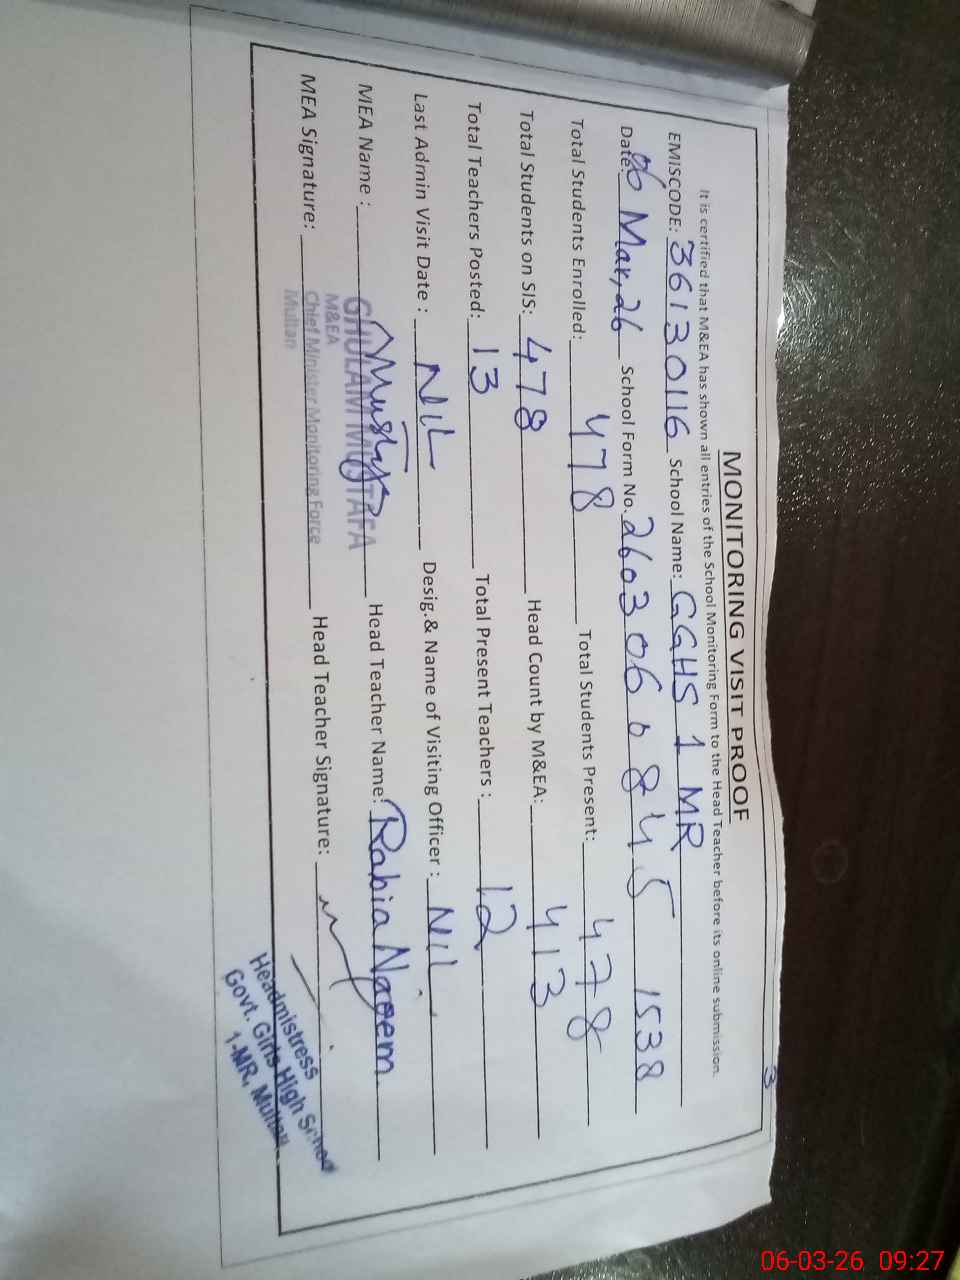 3
MONITORING VISIT PROOF
It is certified that M&EA has shown all entries of the School Monitoring Form to the Head Teacher before its online submission.
EMISCODE: 36130116 School Name: GGHS 1 MR
Date: 06 Mar, 26 School Form No. 2603066845 1538
Total Students Enrolled: 478 Total Students Present: 478
Total Students on SIS: 478 Head Count by M&EA: 413
Total Teachers Posted: 13 Total Present Teachers : 12
Last Admin Visit Date : NIL Desig.& Name of Visiting Officer : NIL
MEA Name : GHULAM MUSTAFA Head Teacher Name: Rabia Naeem
M&EA
MEA Signature: Chief Minister Monitoring Force Head Teacher Signature:
Multan
Headmistress
Govt. Girls High School
1-MR, Multan
06-03-26 09:27